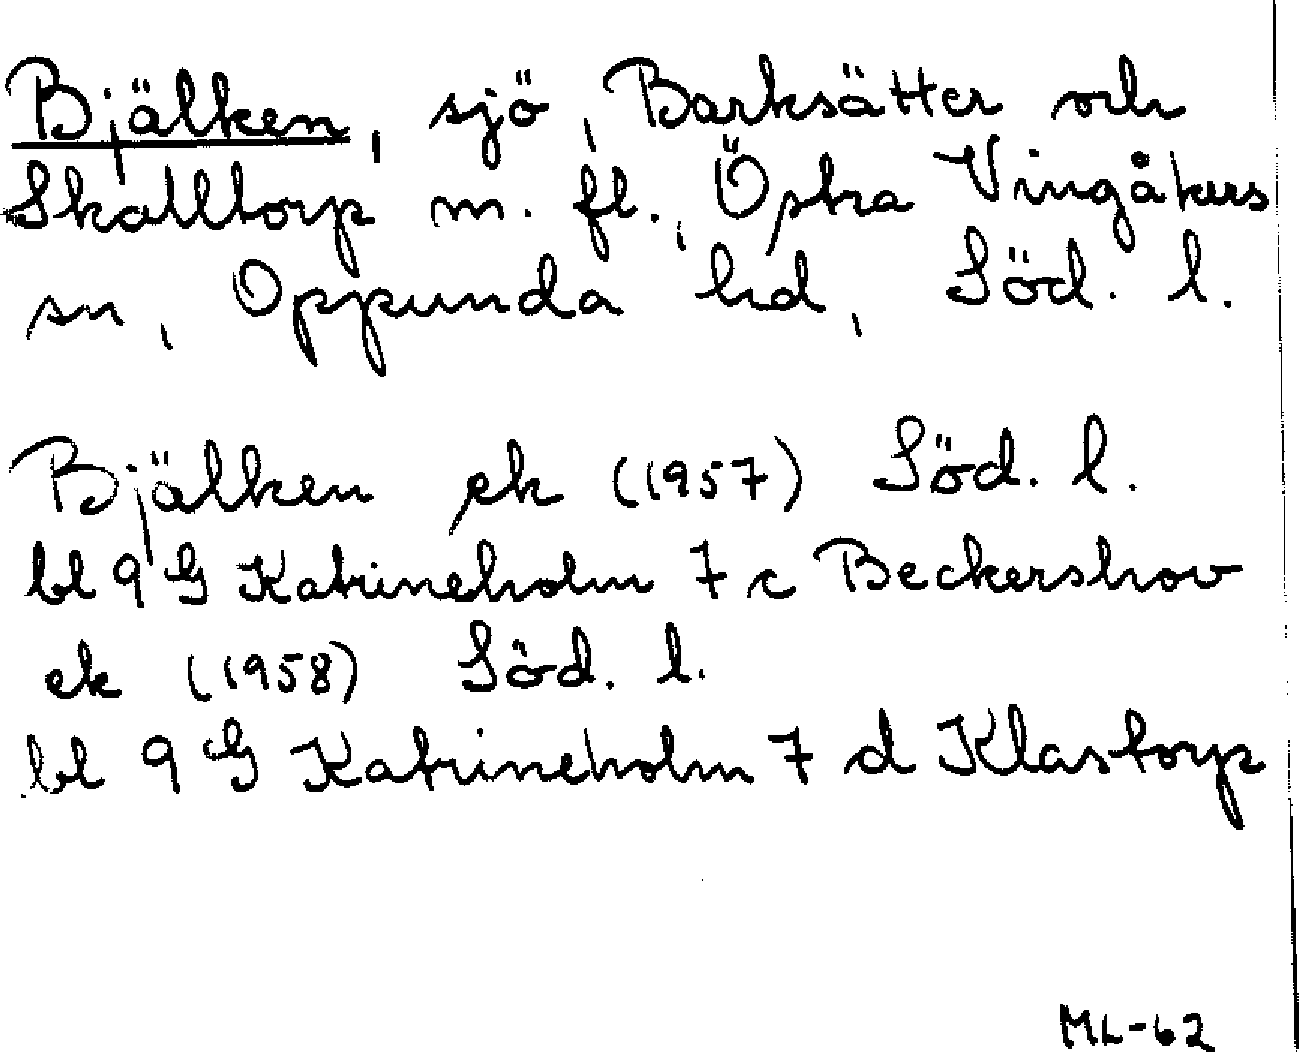 Bjälken, sjö, Barksätter och
Skalltorp m. fl., Östra Vingåkers
sn, Oppunda hd, Söd. l.
Bjälken ek (1957) Söd. l.
bl 9 G Katrineholm 7 c Beckershov
ek (1958) Söd. l.
bl 9 G Katrineholm 7 d Klastorp
ML-62